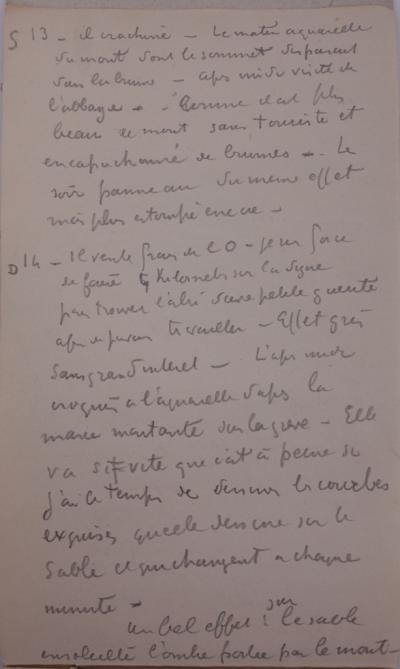 S 13 - il crachine - Le matin aquarelle
du mont dont le sommet disparait
dans la brume - aps midi visite de
l'abbaye - Comme il est plus
beau ce mont sans touriste et
encapuchonné de brumes -. Le
soir panneau du meme effet
mais plus estompé encore -
D 14 - Il vente frais de l O - je suis forcé
de faire 4 kilometres sur la digue
pour trouver l'abri d'une petite guerite
afin de pouvoir travailler - Effet gris
sans grand interet - L'aps midi
croquis a l'aquarelle d'aps la
maree montante sur la greve - Elle
va si vite que c'est à peine si
j'ai le temps de dessiner les courbes
exquises qu'elle dessine sur le
sable et qui changent a chaque
minute -
un bel effet : sur le sable
ensoleillé l'ombre portee par le mont -